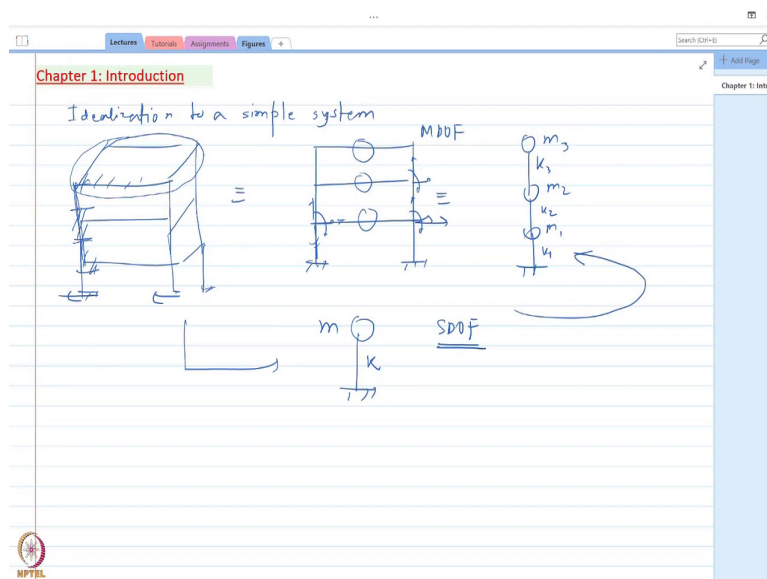 ...
Lectures Tutorials Assignments Figures +
Search (Ctrl+E)
+ Add Page
Chapter 1: Introduction
Chapter 1: Int
Idealization to a simple system
MDOF
m3
k3
≡
≡
m2
k2
m1
k1
m
SDOF
k
NPTEL